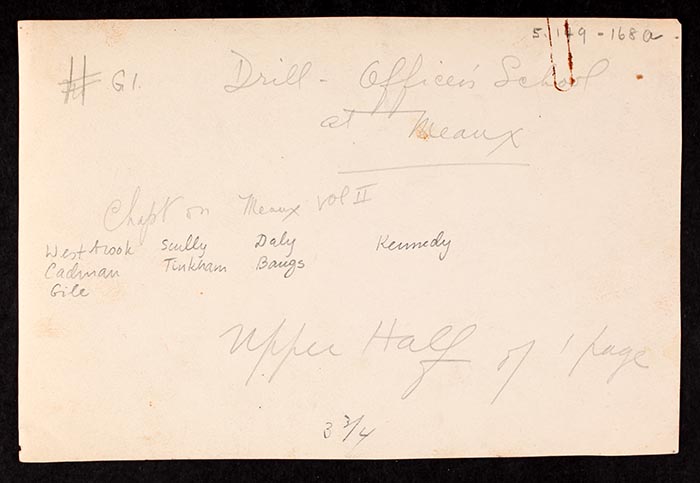 5.149-168a
# G1. Drill - Officer's School
at Meaux
Chapt on Meaux Vol II
Westbrook Scully Daly Kennedy
Cadman Tinkham Bangs
Gile
Upper Half of 1 page
3 3/4